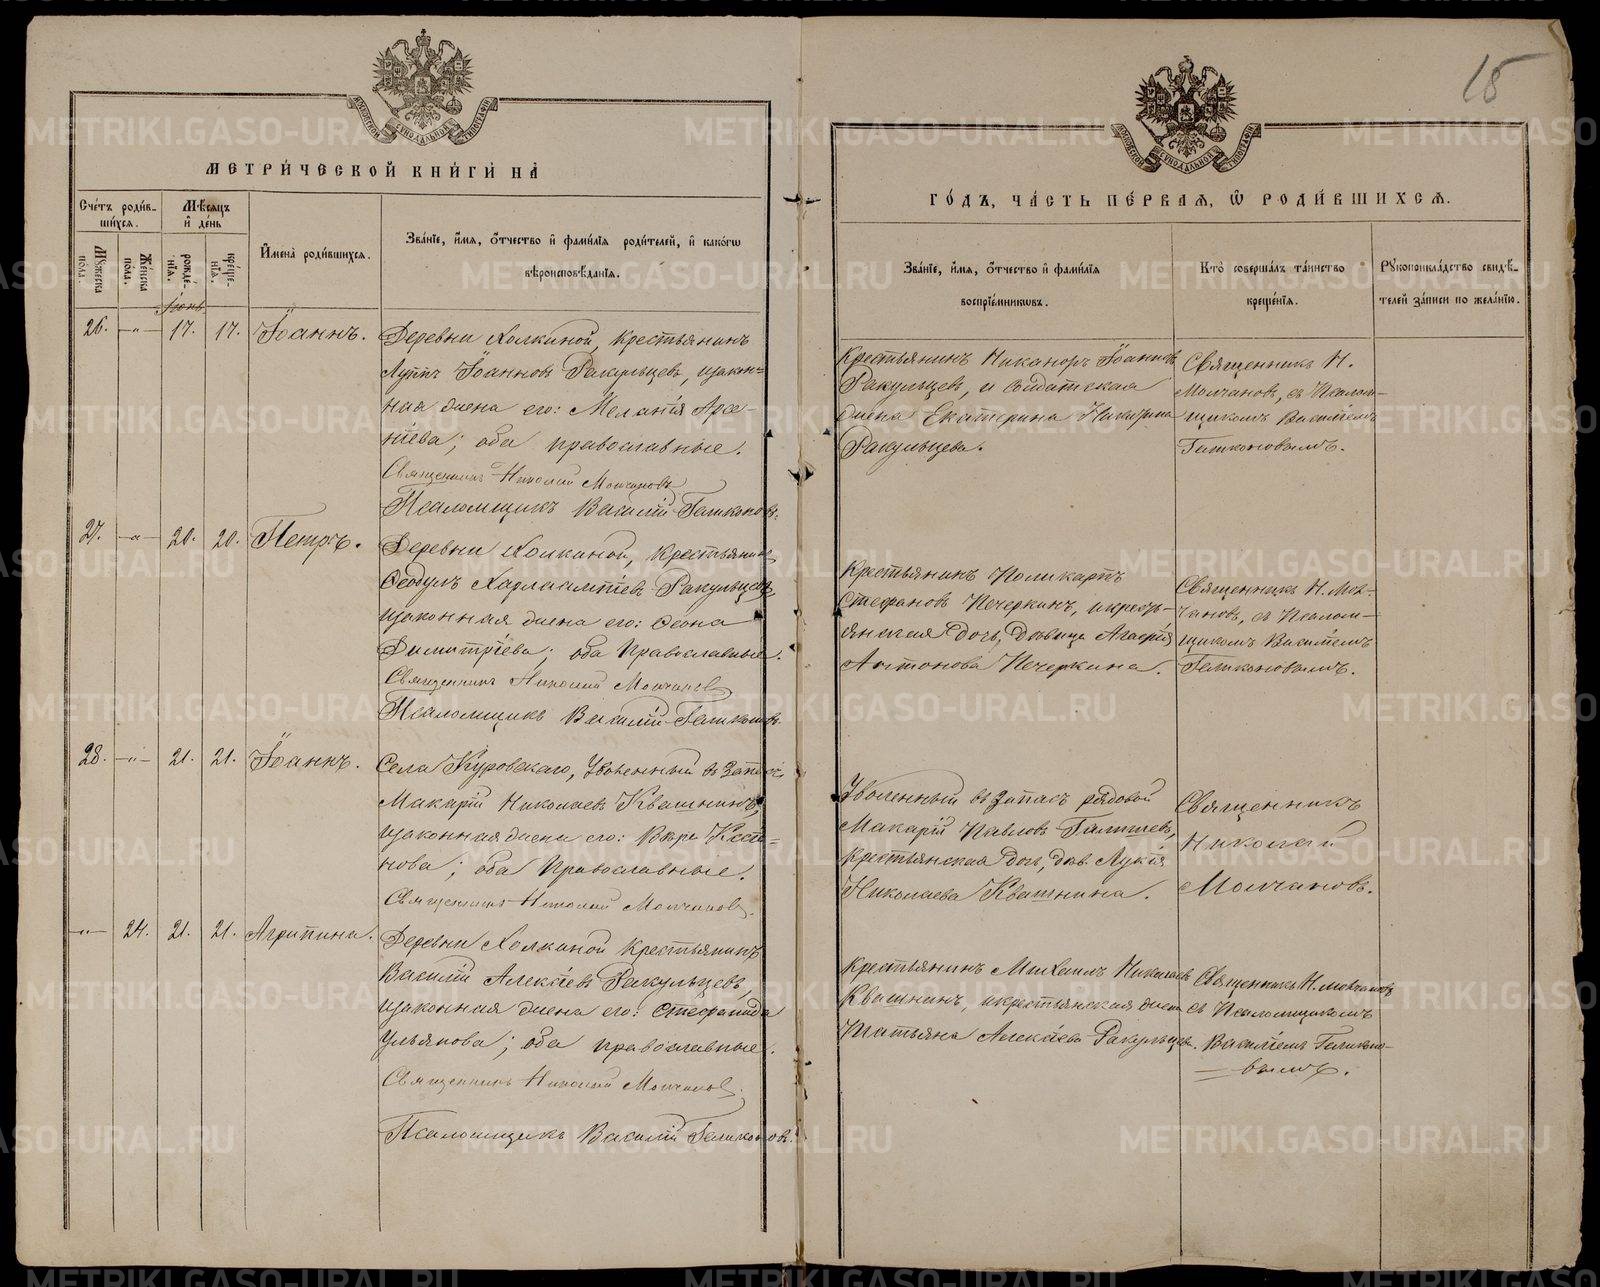 15
МЕТРИ́ЧЕСКОЙ КНИ́ГИ НА̀
ГО́ДЪ, ЧА́СТЬ ПЕ́РВАѦ, Ѽ РОДИ́ВШИХСѦ.
Сче́тъ роди́вшихся.
Мѣ́сяцъ и҆ де́нь
И҆мена̀ роди́вшихся.
Зва́нїе, и҆́мя, ѻ҆́тчество и҆ фами́лїя роди́телей, и҆ како́гѡ
вѣроисповѣ́данїя.
Мꙋ́жеска по́ла.
Же́нска по́ла.
рожде́нїя.
креще́нїя.
Зва́нїе, и҆́мя, ѻ҆́тчество и҆ фами́лїя
воспрїе́мникѡвъ.
Кто̀ соверша́лъ та́инство
креще́нїя.
Рꙋкоприкла́дство свидѣ́-
телей за́писи по жела́нїю.
Іюнь
26. -"- 17. 17. Іоаннъ.
Деревни Холкиной, крестьянинъ
Луппъ Іоанновъ Ракульцевъ, закон-
ная жена его: Меланія Арсе-
ніева; оба православные.
Священникъ Николай Молчановъ
Псаломщикъ Василій Геликоновъ.
Крестьянинъ Никаноръ Іоанновъ
Ракульцевъ, и солдатская
жена Екатерина
Ракульцева.
Священникъ Н.
Молчановъ, съ Псалом-
щикомъ Василіемъ
Геликоновымъ.
27. -"- 20. 20. Петръ.
Деревни Холкиной, крестьянинъ
Ѳеодулъ Харлампіевъ Ракульцевъ,
законная жена его: Ѳеона
Димитріева; оба Православные.
Священникъ Николай Молчановъ
Псаломщикъ Василій Геликоновъ.
Крестьянинъ Поликарпъ
Стефановъ Печеркинъ, и кресть-
янская дочь, дѣвица Агафія
Антонова Печеркина.
Священникъ Н. Мол-
чановъ, съ Псалом-
щикомъ Василіемъ
Геликоновымъ.
28. -"- 21. 21. Іоаннъ.
Села Куровскаго, Уволенный въ Запасъ
Макарій Николаевъ Квашнинъ,
законная жена его: Вѣра
оба Православные.
Священникъ Николай Молчановъ.
Уволенный въ Запасъ рядовой
Макарій Павловъ
Крестьянская дочь, дѣв. Лукія
Николаева Квашнина.
Священникъ
Николай
Молчановъ.
-"- 24. 21. 21. Агрипина.
Деревни Холкиной крестьянинъ
Василій Алексіевъ Ракульцевъ,
законная жена его: Стефанида
Ульянова; оба православные.
Священникъ Николай Молчановъ.
Псаломщикъ Василій Геликоновъ.
Крестьянинъ Михаилъ Николаевъ
Квашнинъ, и крестьянская жена
Татьяна Алексіева Ракульцева.
Священникъ Н. Молчановъ
съ Псаломщикомъ
Василіемъ Гелико-
новымъ.
METRIKI.GASO-URAL.RU